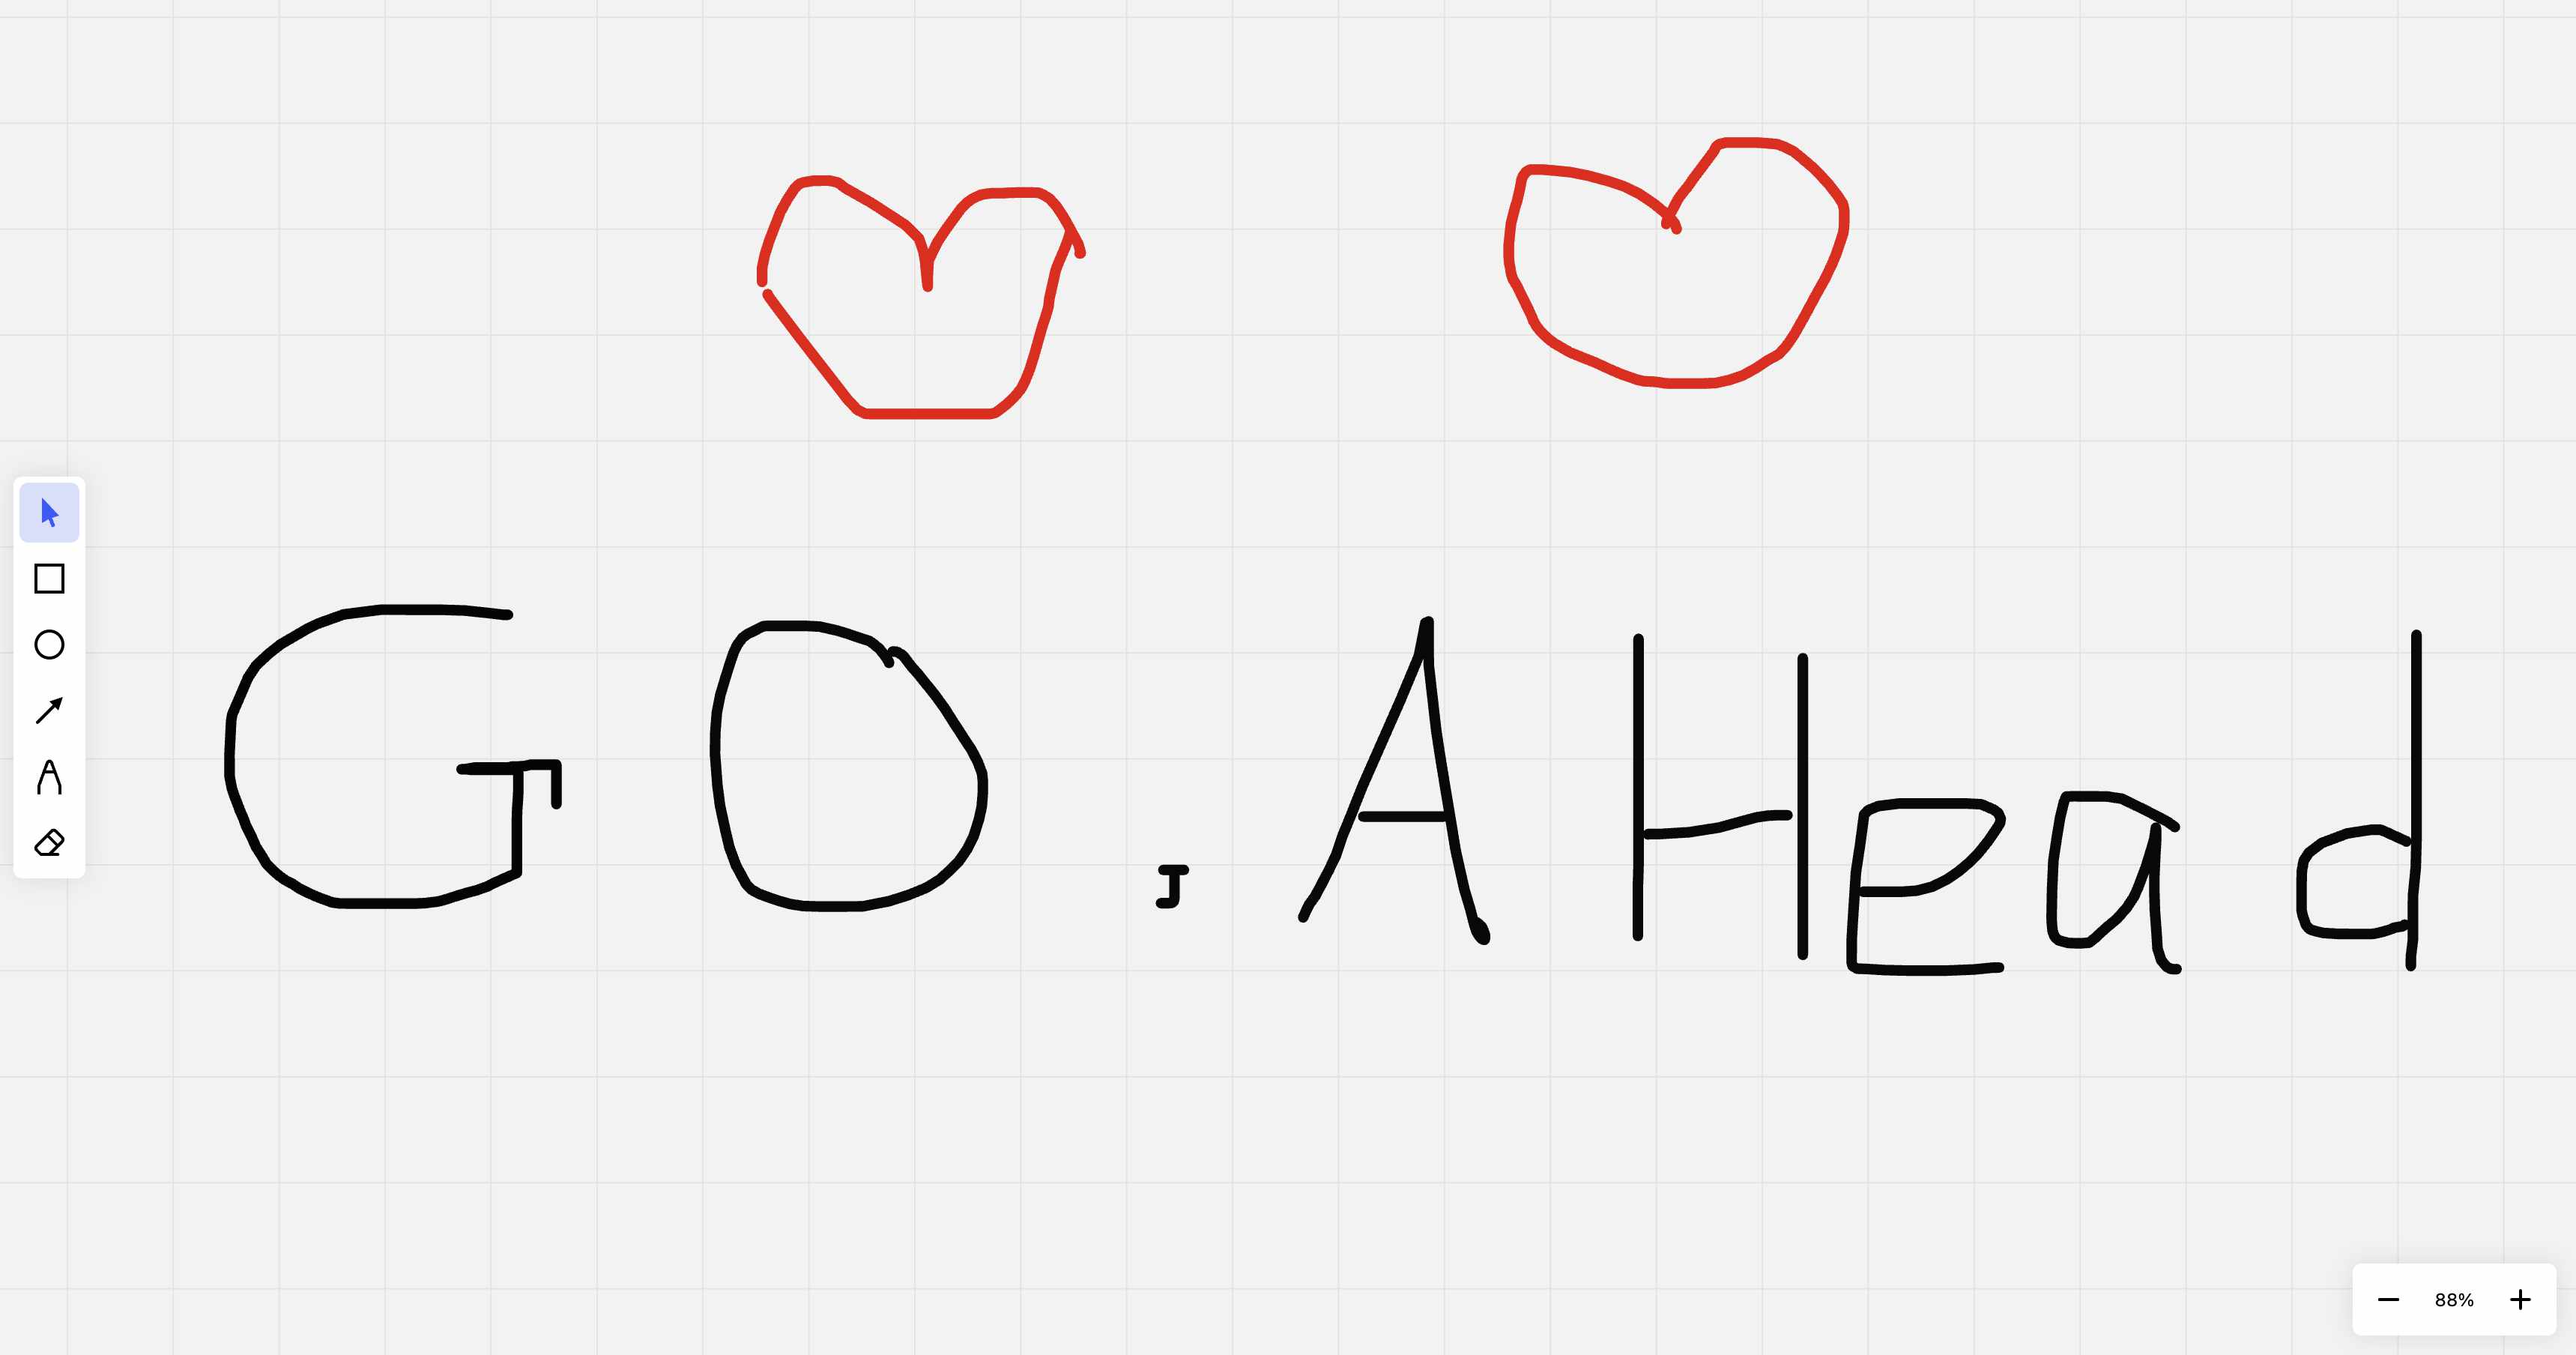 GO, AHead
88%